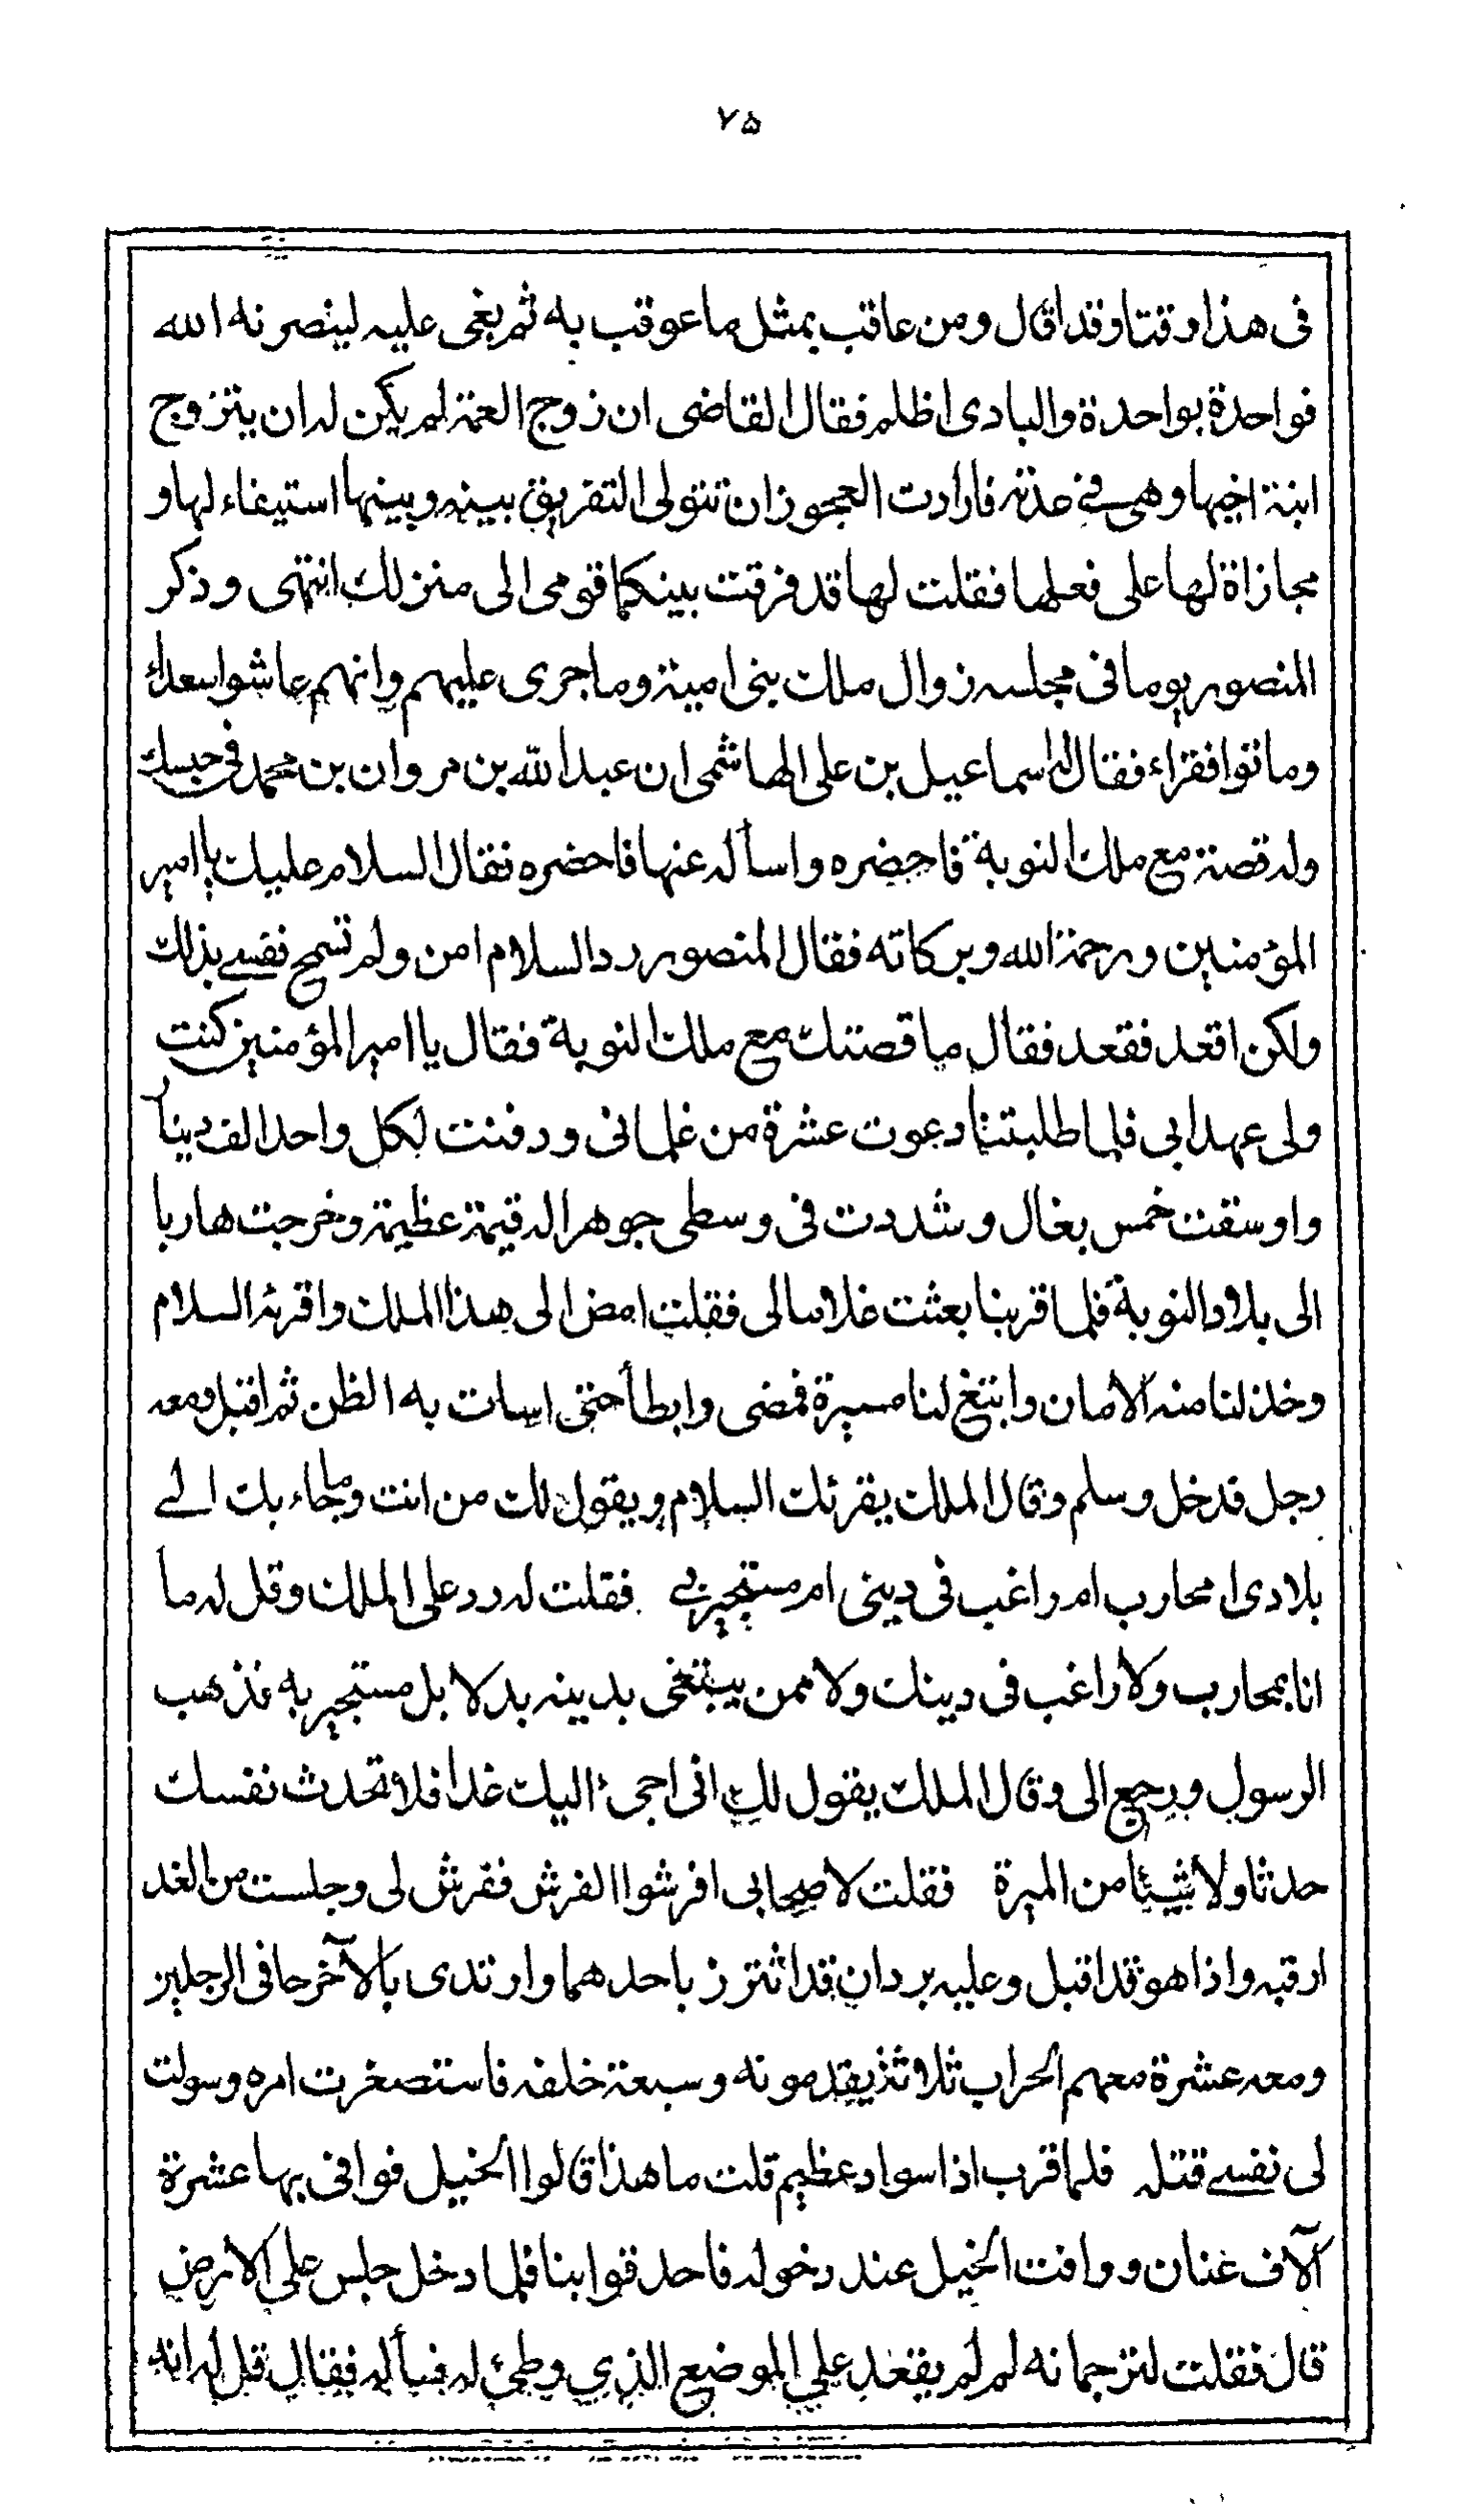 ٧٥
فى هذا وقتا وقد اقال ومن عاقب بمثل ما عوقب به ثم بغى عليه لينصرنه الله
فواحدة بواحدة والبادى اظلم فقال القاضى ان زوج العمة لم يكن له ان يتزوج
ابنة اخيها وهى في عدته فارادت العجوز ان تتولى التفريق بينه وبينها استيفاء لها و
مجازاة لها على فعلها فقلت لها قد فرقت بينكما قومى الى منزلك انتهى وذكر
المنصور يوما فى مجلسه زوال ملك بنى امية وما جرى عليهم وانهم عاشوا سعداء
وماتوا فقراء فقال له اسماعيل بن على الهاشمى ان عبد الله بن مروان بن محمد فى حبسك
وله قصة مع ملك النوبة فاحضره واسأله عنها فاحضره فقال السلام عليك يا امير
المؤمنين ورحمة الله وبركاته فقال المنصور رد السلام امن ولم تسمح نفسي بذلك
ولكن اقعد فقعد فقال ما قصتك مع ملك النوبة فقال يا امير المؤمنين كنت
ولى عهد ابى فلما طلبتنا دعوت عشرة من غلمانى ودفنت لكل واحد الف دينار
واوسقت خمس بغال وشددت فى وسطى جوهرا له قيمة عظيمة وخرجت هاربا
الى بلاد النوبة فلما قربنا بعثت غلاما لى فقلت امض الى هذا الملك واقرئه السلام
وخذ لنا منه الامان وابتغ لنا مسيرة فمضى وابطأ حتى اسات به الظن ثم اقبل ومعه
رجل فدخل وسلم وقال الملك يقرئك السلام ويقول لك من انت وما جاء بك الے
بلادى ا محارب ام راغب فى دينى ام مستجير بے فقلت له رد على الملك وقل له ما
انا بمحارب ولا راغب فى دينك ولا ممن يبتغى بدينه بدلا بل مستجير به فذهب
الرسول ورجع الى وقال الملك يقول لك انى اجئ اليك غدا فلا تحدث نفسك
حدثا ولا شيئا من الميرة فقلت لاصحابى افرشوا الفرش ففرش لى وجلست من الغد
ارقبه واذا هو قد اقبل وعليه بردان قد اتزر باحدهما وارتدى بالآخر حافى الرجلين
ومعه عشرة معهم الحراب ثلاثة يقدمونه وسبعة خلفه فاستصغرت امره وسولت
لى نفسے قتله فلما قرب اذا سواد عظيم قلت ما هذا قالوا الخيل فوافى بها عشرة
آلاف عنان ووافت الخيل عند دخوله فاحدقوا بنا فلما دخل جلس على الارض
قال فقلت لترجمانه لم لم يقعد على الموضع الذى وطئ له فسأله فقال قل له انه